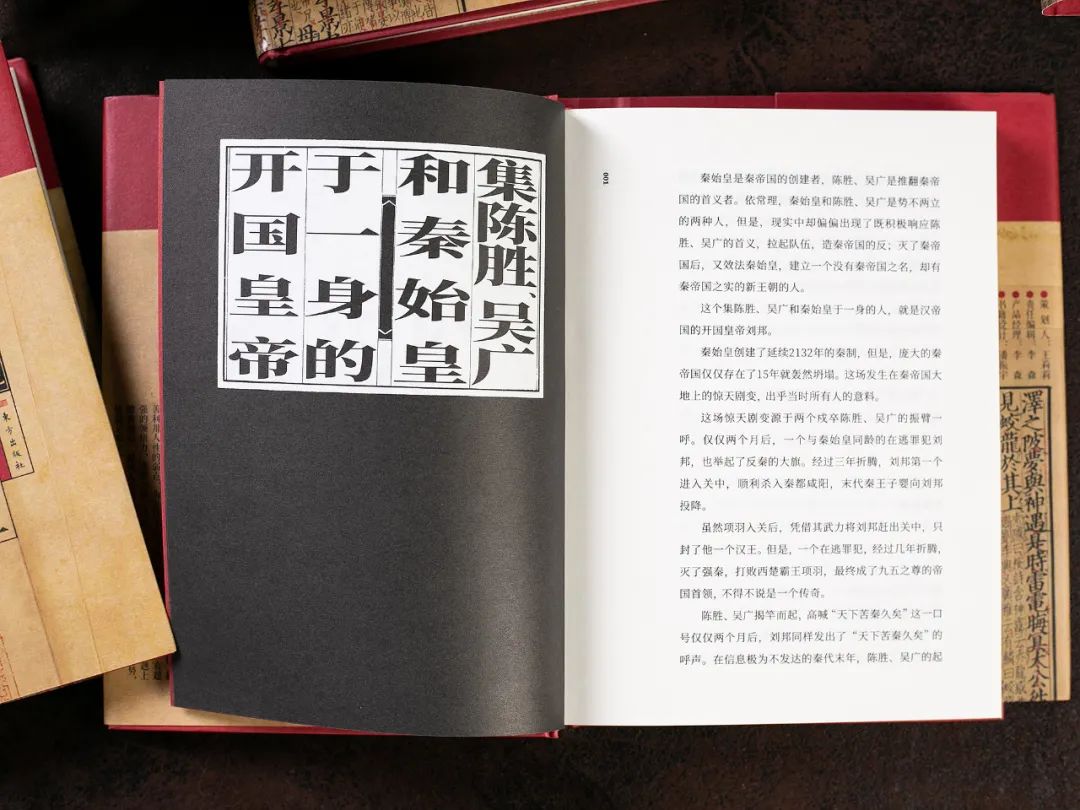 集陈胜、吴广
和秦始皇
于一身的
开国皇帝
001
秦始皇是秦帝国的创建者，陈胜、吴广是推翻秦帝
国的首义者。依常理，秦始皇和陈胜、吴广是势不两立
的两种人，但是，现实中却偏偏出现了既积极响应陈
胜、吴广的首义，拉起队伍，造秦帝国的反；灭了秦帝
国后，又效法秦始皇，建立一个没有秦帝国之名，却有
秦帝国之实的新王朝的人。
这个集陈胜、吴广和秦始皇于一身的人，就是汉帝
国的开国皇帝刘邦。
秦始皇创建了延续2132年的秦制，但是，庞大的秦
帝国仅仅存在了15年就轰然坍塌。这场发生在秦帝国大
地上的惊天剧变，出乎当时所有人的意料。
这场惊天剧变源于两个戍卒陈胜、吴广的振臂一
呼。仅仅两个月后，一个与秦始皇同龄的在逃罪犯刘
邦，也举起了反秦的大旗。经过三年折腾，刘邦第一个
进入关中，顺利杀入秦都咸阳，末代秦王子婴向刘邦
投降。
虽然项羽入关后，凭借其武力将刘邦赶出关中，只
封了他一个汉王。但是，一个在逃罪犯，经过几年折腾，
灭了强秦，打败西楚霸王项羽，最终成了九五之尊的帝
国首领，不得不说是一个传奇。
陈胜、吴广揭竿而起，高喊“天下苦秦久矣”这一口
号仅仅两个月后，刘邦同样发出了“天下苦秦久矣”的
呼声。在信息极为不发达的秦代末年，陈胜、吴广的起
策划人：王莉莉
责任编辑：李森
产品经理：李森
书籍设计：潘振宇
澤之陂夢與神遇是時雷電晦冥太公往
見蛟龍於其上
东方出版社